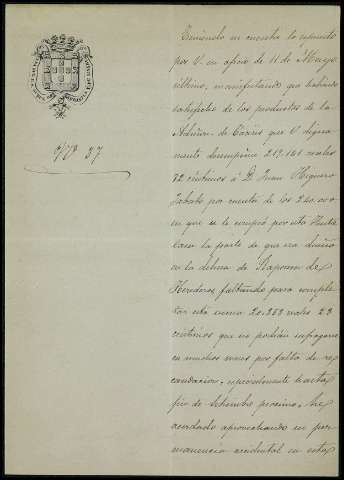 Nº 37
Teniendo en cuenta lo espuesto
por V. en oficio de 11 de Mayo
último, manifestando que habiendo
satisfecho de los productos de la
Admon. de Cázeres que V. digna
mente desempeña 219.141 reales
72 céntimos á D. Juan Higuero
por cuenta de los 240.000
en que se le compró por esta Exma
Casa la parte de que era dueño
en la dehesa de Raposera de
Herederos, faltando para comple
tar esta suma 20.858 reales 28
céntimos que no podían sufragarse
en muchos meses por falta de re
caudacion, especialmente hasta
fin de Setiembre proximo, he
acordado aprovechando mi per
manencia accidental en esta